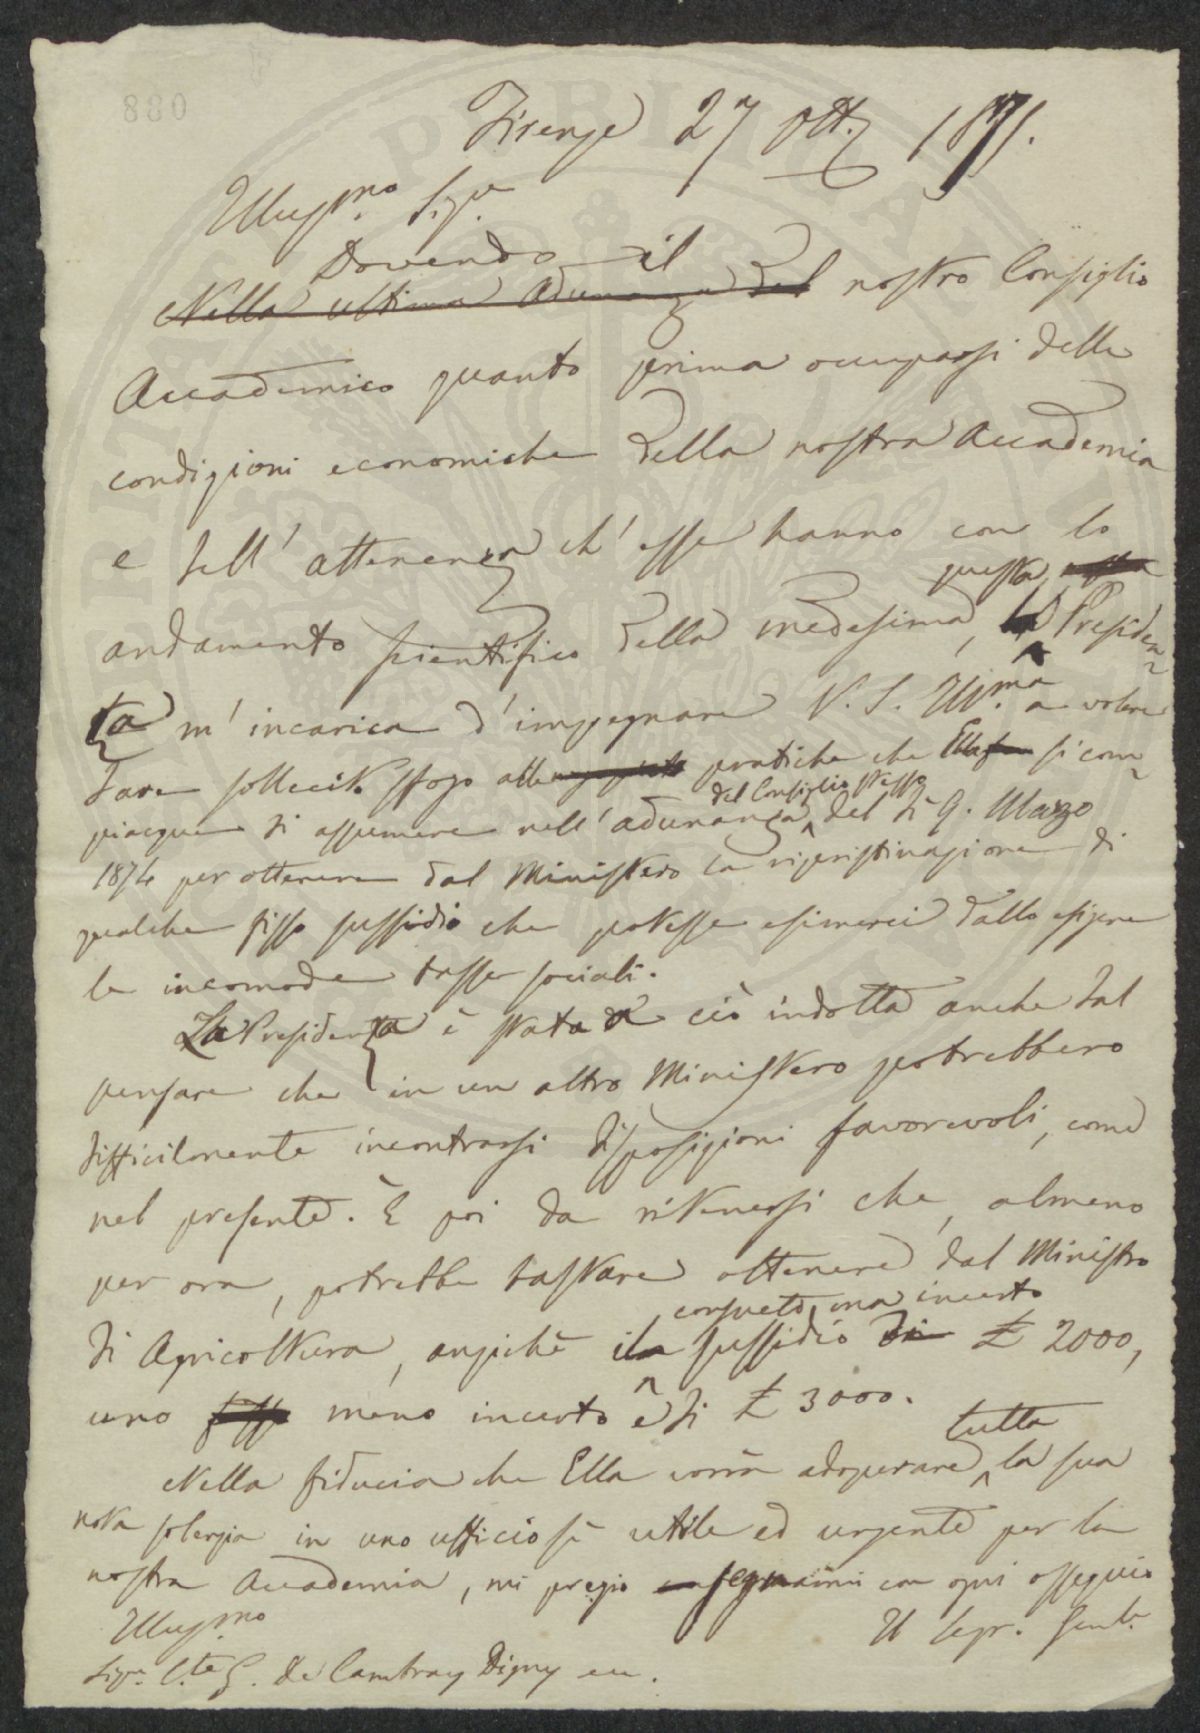 880
Firenze 27 Ott. 1875.
Illus.mo Sig.re
Dovendo il
Nella ultima Adunanza del nostro Consiglio
Accademico quanto prima occuparsi delle
condizioni economiche della nostra Accademia
e dell'attenenza ch'esse hanno con lo
questa
andamento scientifico della medesima, la Presiden-
za m'incarica d'impegnare V. S. Ill.ma a volere
dare sollecito sfogo alle pratiche che Ella si com-
del Consiglio stesso
piacque di assumere nell'adunanza del dì 9. Marzo
1874 per ottenere dal Ministero la ripristinazione di
qualche fisso sussidio che potesse esimerci dallo esigere
le incomode tasse sociali.
La Presidenza è stata a ciò indotta anche dal
pensare che in un altro Ministero potrebbero
difficilmente incontrarsi disposizioni favorevoli, come
nel presente. È poi da ritenersi che, almeno
per ora, potrebbe bastare ottenere dal Ministro
consueto, ma incerto
di Agricoltura, anzichè il sussidio di £ 2000,
uno fisso meno incerto e di £ 3000.
tutta
Nella fiducia che Ella vorrà adoperare la sua
nota solerzia in uno ufficio sì utile ed urgente per la
nostra Accademia, mi pregio segnarmi con ogni ossequio
Illus.mo
Il Segr.
Sig.re C.te G. De Cambray Digny ec.